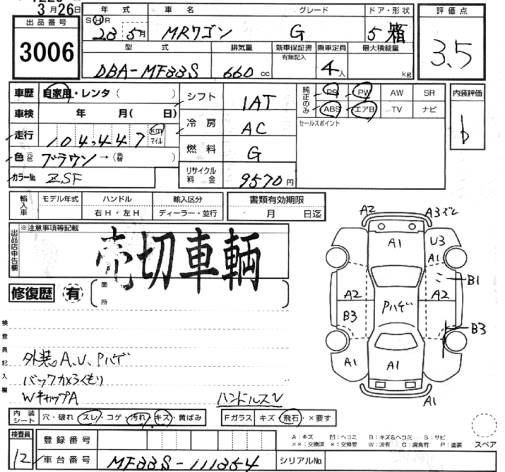 3月26日
出品番号
3006
年式 車名 グレード ドア・形状
SH 23 5月 MRワゴン G 5 箱
型式 排気量 新車保証書 有無記入 乗車定員 最大積載量
DBA-MF33S 660 cc 4人 kg
評価点
3.5
車歴 自家用・レンタ( )
車検 年 月( )
走行 104,447 マイル
色 ブラウン →( )
カラーNo ZSF
シフト 1AT
冷房 AC
燃料 G
リサイクル料金 9570円
純正のみ PS PW AW SR
ABS エアB TV ナビ
セールスポイント
内装評価
b
輸入車 モデル年式 ハンドル 輸入区分
右H・左H ディーラー・並行
書類有効期限
月 日迄
出品店申告欄
※注意事項等記載
売切車輌
修復歴 有
箇所
検査員記入欄
外装A、U、Pハゲ
バックカメラくもり
WキャップA
ハンドルスレ
A2 A3 A1 U3 A1 B1 A2 A2 Pハゲ B3 B3 A1 A1 A2
内装シート 穴・破れ スレ コゲ 汚れ キズ 黄ばみ
Fガラス キズ 飛石 ×要す
スペア
検査員
12
登録番号
車台番号 MF33S-111354
シリアルNo